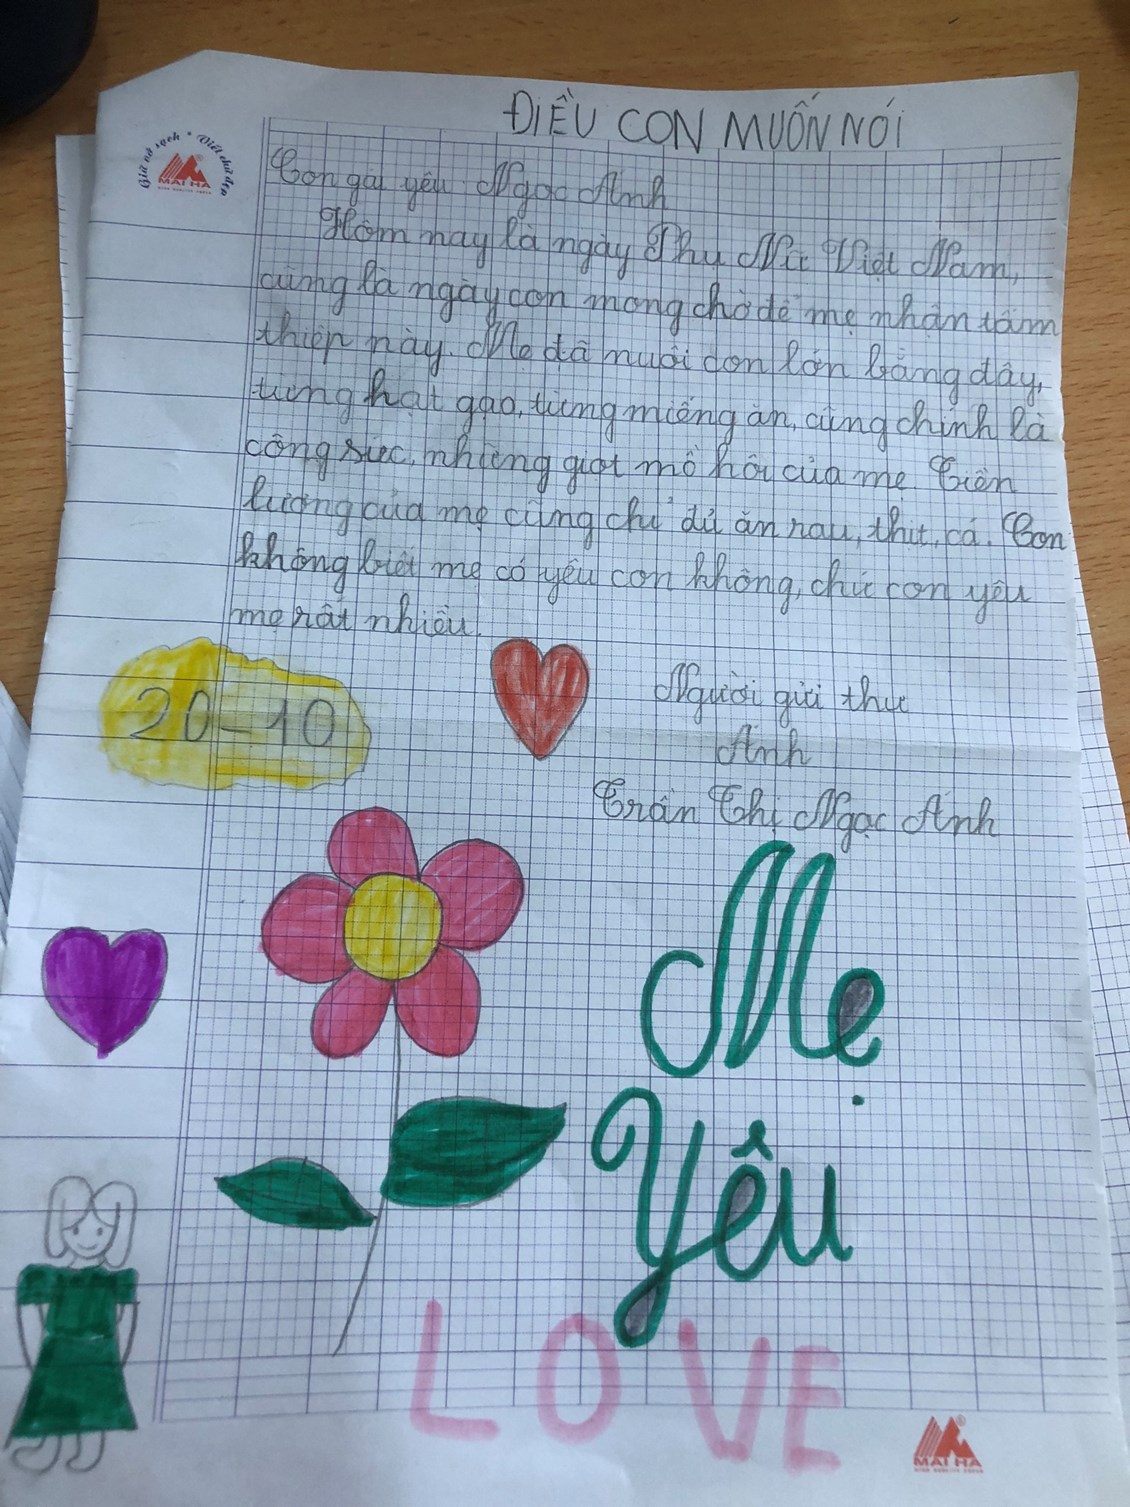 ĐIỀU CON MUỐN NÓI
Giữ vở sạch * Viết chữ đẹp
MAI HA
Con gái yêu: Ngọc Ánh
Hôm nay là ngày Phụ Nữ Việt Nam,
cũng là ngày con mong chờ để mẹ nhận tấm
thiệp này. Mẹ đã nuôi con lớn bằng đây,
từng hạt gạo, từng miếng ăn, cũng chính là
công sức, những giọt mồ hôi của mẹ. Tiền
lương của mẹ cũng chỉ đủ ăn rau, thịt, cá. Con
không biết mẹ có yêu con không, chứ con yêu
mẹ rất nhiều.
20-10
Người gửi thư
Ánh
Trần Thị Ngọc Ánh
Mẹ
Yêu
LOVE
MAI HA